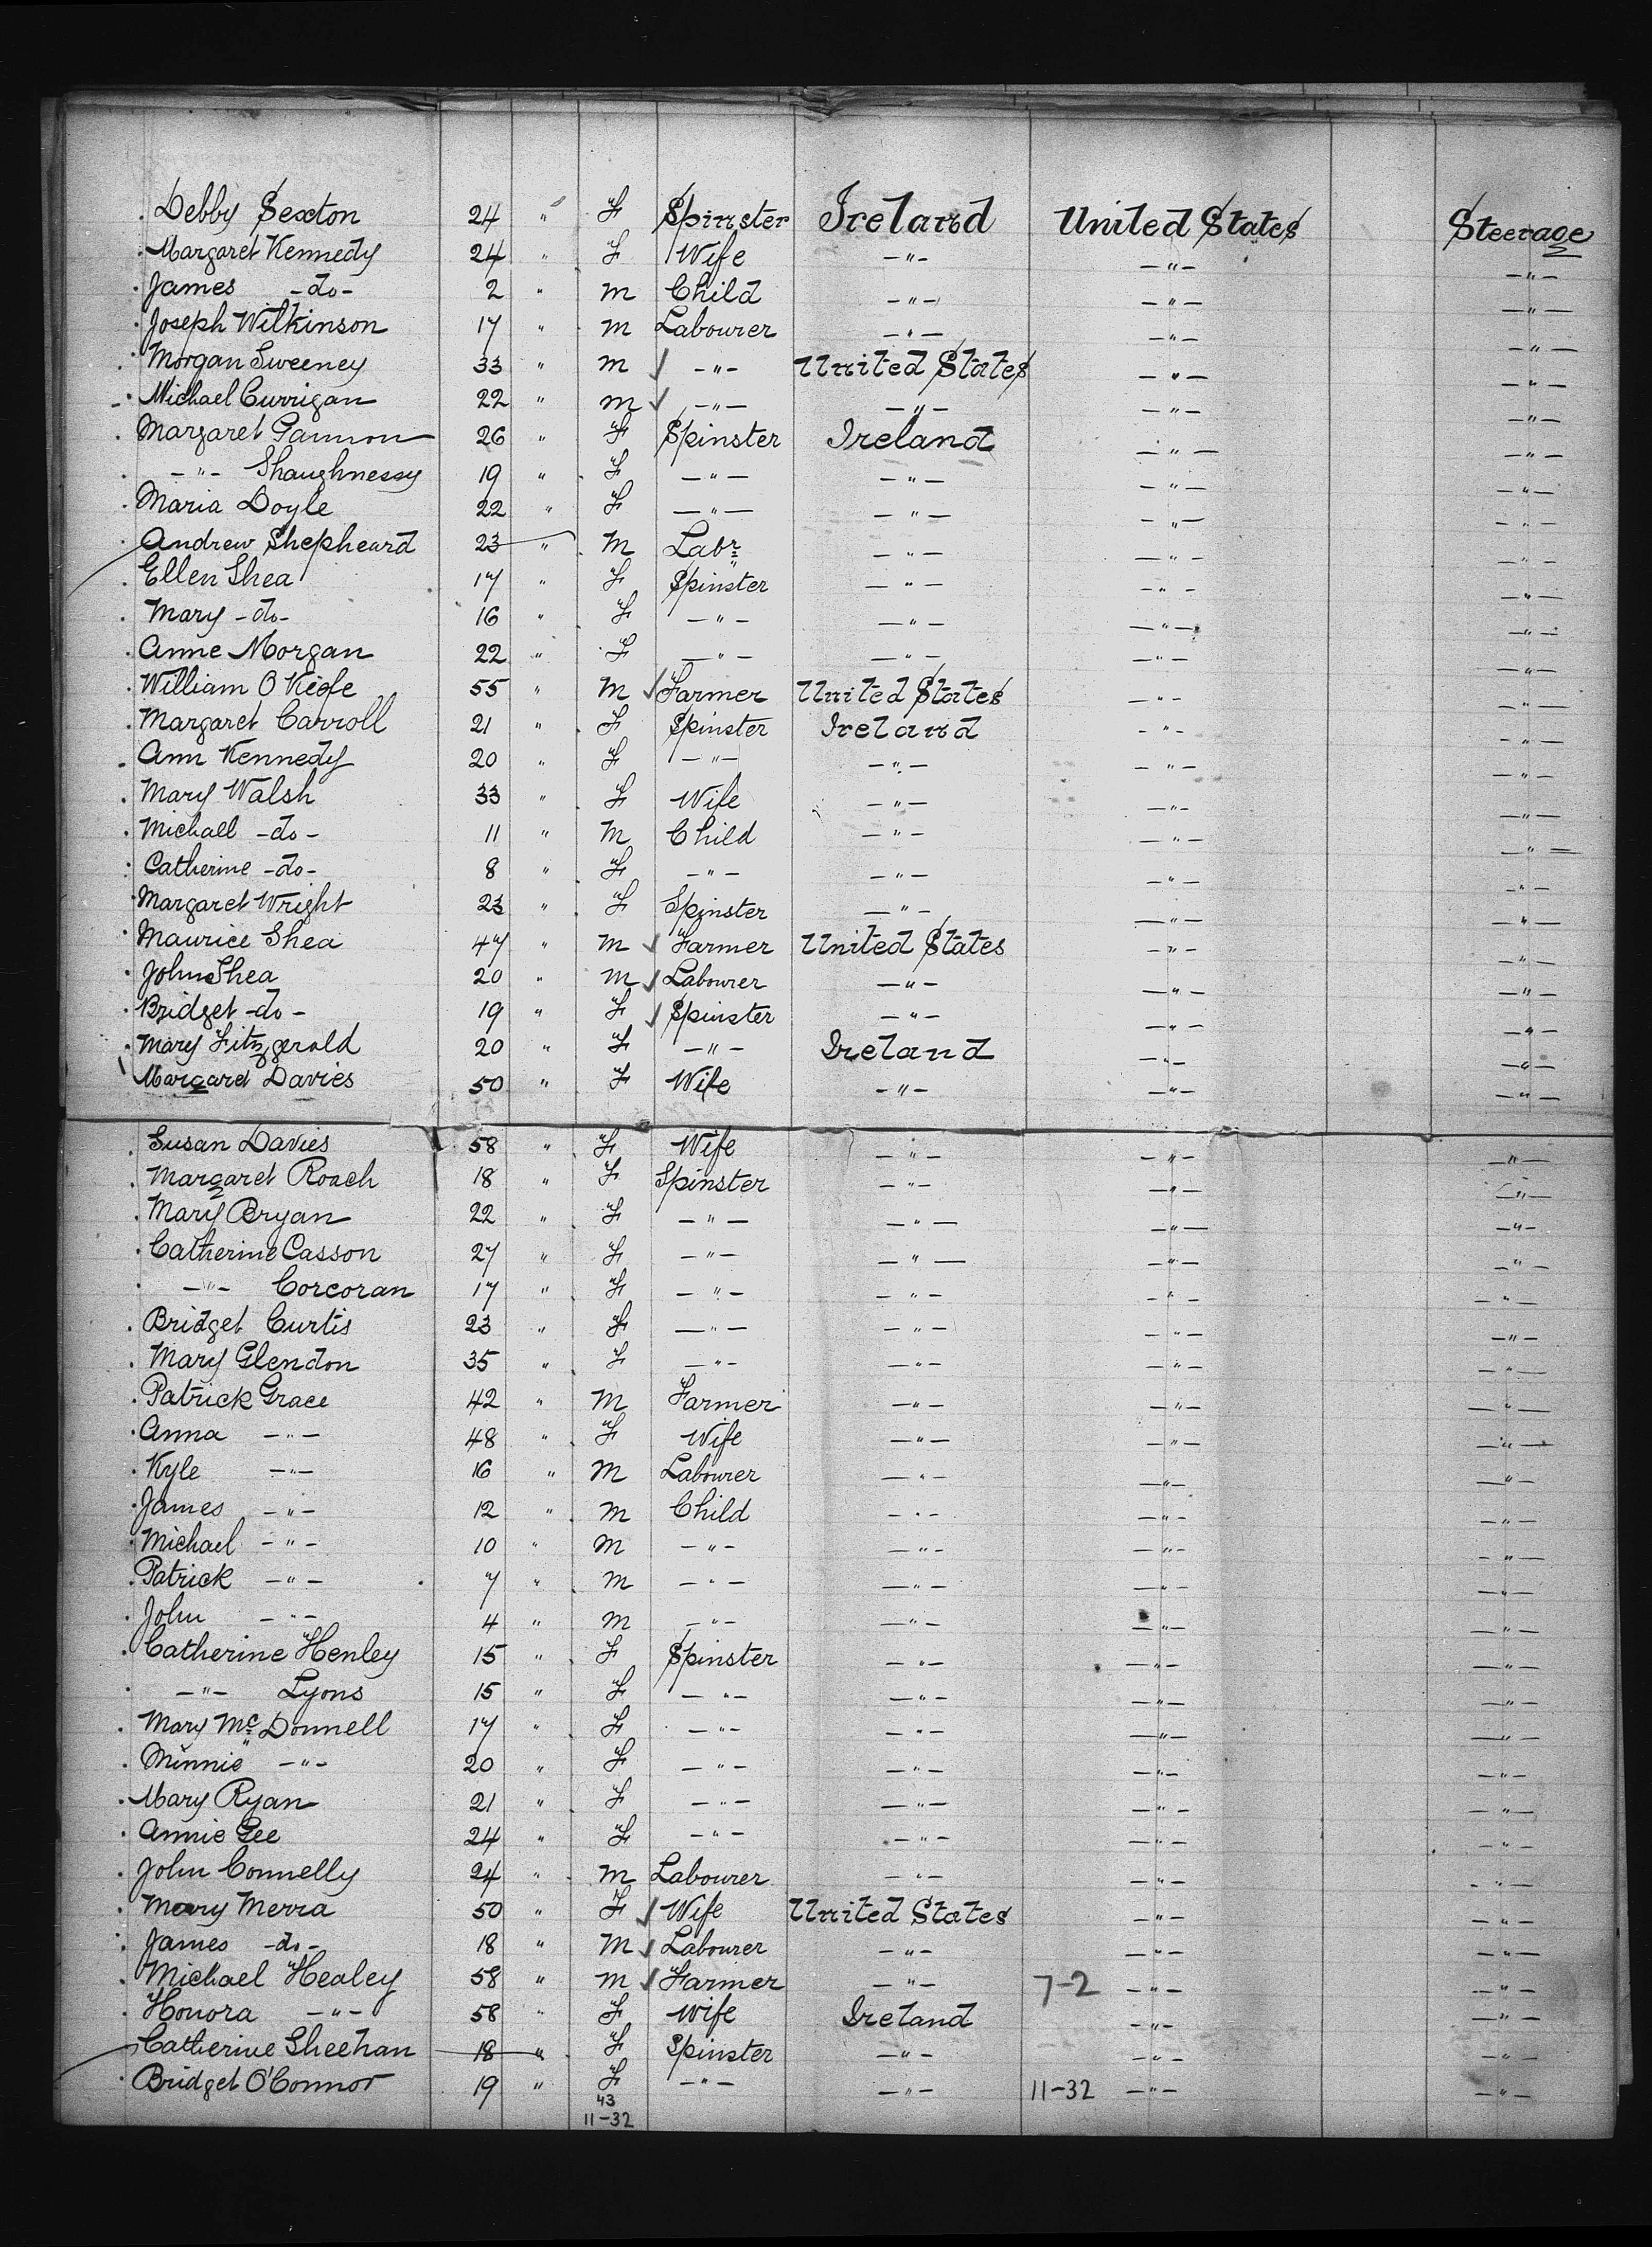 Debby Sexton 24 " F Spinster Ireland United States Steerage
Margaret Kennedy 24 " F Wife -"- -"- -"-
James -do- 2 " M Child -"- -"- -"-
Joseph Wilkinson 17 " M Labourer -"- -"- -"-
Morgan Sweeney 33 " M ✓ -"- United States -"- -"-
Michael Currigan 22 " M ✓ -"- -"- -"- -"-
Margaret Gannon 26 " F Spinster Ireland -"- -"-
-"- Shaughnessy 19 " F -"- -"- -"- -"-
Maria Doyle 22 " F -"- -"- -"- -"-
Andrew Shepheard 23 " M Labr -"- -"- -"-
Ellen Shea 17 " F Spinster -"- -"- -"-
Mary -do- 16 " F -"- -"- -"- -"-
Anne Morgan 22 " F -"- -"- -"- -"-
William O'Keefe 55 " M ✓ Farmer United States -"- -"-
Margaret Carroll 21 " F Spinster Ireland -"- -"-
Ann Kennedy 20 " F -"- -"- -"- -"-
Mary Walsh 33 " F Wife -"- -"- -"-
Michall -do- 11 " M Child -"- -"- -"-
Catherine -do- 8 " F -"- -"- -"- -"-
Margaret Wright 23 " F Spinster -"- -"- -"-
Maurice Shea 47 " M ✓ Farmer United States -"- -"-
John Shea 20 " M ✓ Labourer -"- -"- -"-
Bridget -do- 19 " F ✓ Spinster -"- -"- -"-
Mary Fitzgerald 20 " F -"- Ireland -"- -"-
Margaret Davies 50 " F Wife -"- -"- -"-
Susan Davies 58 " F Wife -"- -"- -"-
Margaret Roach 18 " F Spinster -"- -"- -"-
Mary Bryan 22 " F -"- -"- -"- -"-
Catherine Casson 27 " F -"- -"- -"- -"-
-"- Corcoran 17 " F -"- -"- -"- -"-
Bridget Curtis 23 " F -"- -"- -"- -"-
Mary Glendon 35 " F -"- -"- -"- -"-
Patrick Grace 42 " M Farmer -"- -"- -"-
Anna -"- 48 " F Wife -"- -"- -"-
Kyle -"- 16 " M Labourer -"- -"- -"-
James -"- 12 " M Child -"- -"- -"-
Michael -"- 10 " M -"- -"- -"- -"-
Patrick -"- 7 " M -"- -"- -"- -"-
John -"- 4 " M -"- -"- -"- -"-
Catherine Henley 15 " F Spinster -"- -"- -"-
-"- Lyons 15 " F -"- -"- -"- -"-
Mary McDonnell 17 " F -"- -"- -"- -"-
Minnie -"- 20 " F -"- -"- -"- -"-
Mary Ryan 21 " F -"- -"- -"- -"-
Annie Gee 24 " F -"- -"- -"- -"-
John Connelly 24 " M Labourer -"- -"- -"-
Mary Merra 50 " F ✓ Wife United States -"- -"-
James -do- 18 " M ✓ Labourer -"- -"- -"-
Michael Healey 58 " M ✓ Farmer -"- 7-2 -"- -"-
Honora -"- 58 " F Wife Ireland -"- -"-
Catherine Sheehan 18 " F Spinster -"- -"- -"-
Bridget O'Connor 19 " F -"- -"- 11-32 -"- -"-
43
11-32